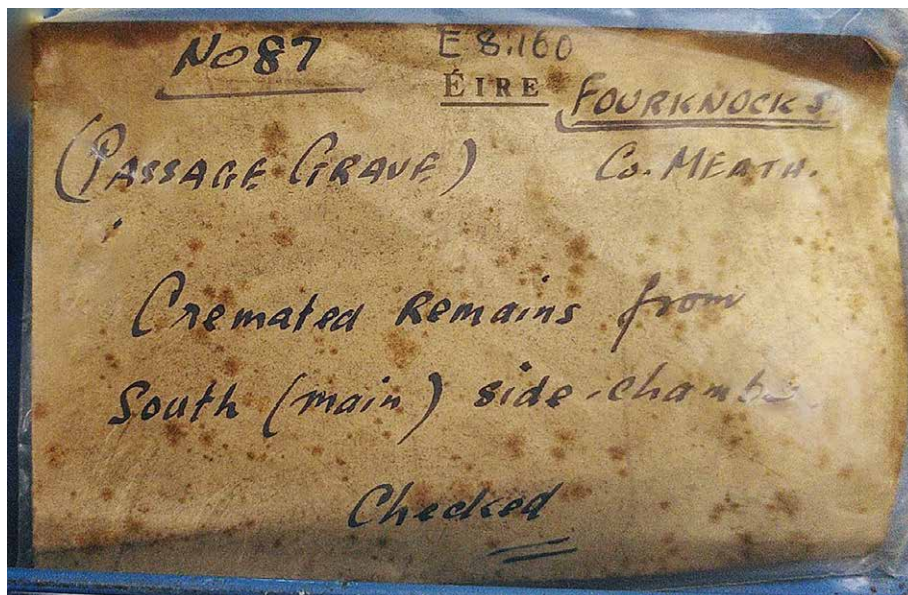 No 87 E 8:160
ÉIRE FOURKNOCKS
(PASSAGE GRAVE) Co. MEATH.
Cremated Remains from
South (main) side-chamber
Checked